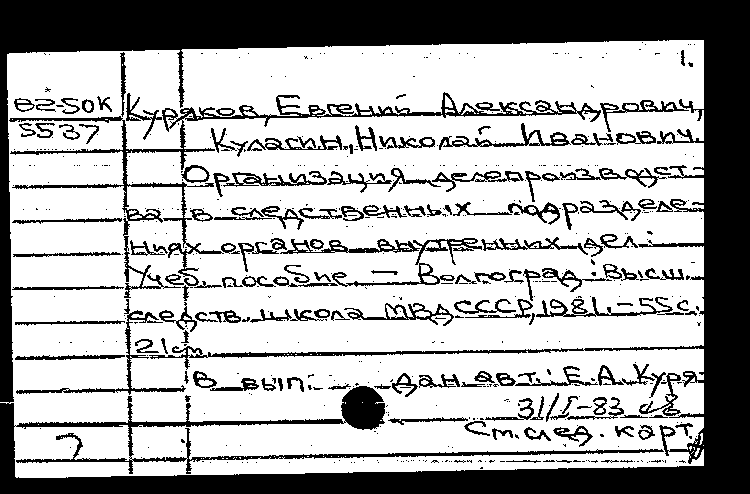 1.
82-50К
5537
Куряков, Евгений Александрович,
Кулагин, Николай Иванович.
Организация делепроизводст-
ва в следственных подразделе-
ниях органов внутренних дел:
Учеб. пособие. — Волгоград: Высш.
следств. школа МВД СССР, 1981. - 55 с.;
21 см.
В вып. дан. авт.: Е. А. Куря-
31/I-83
См. след. карт.